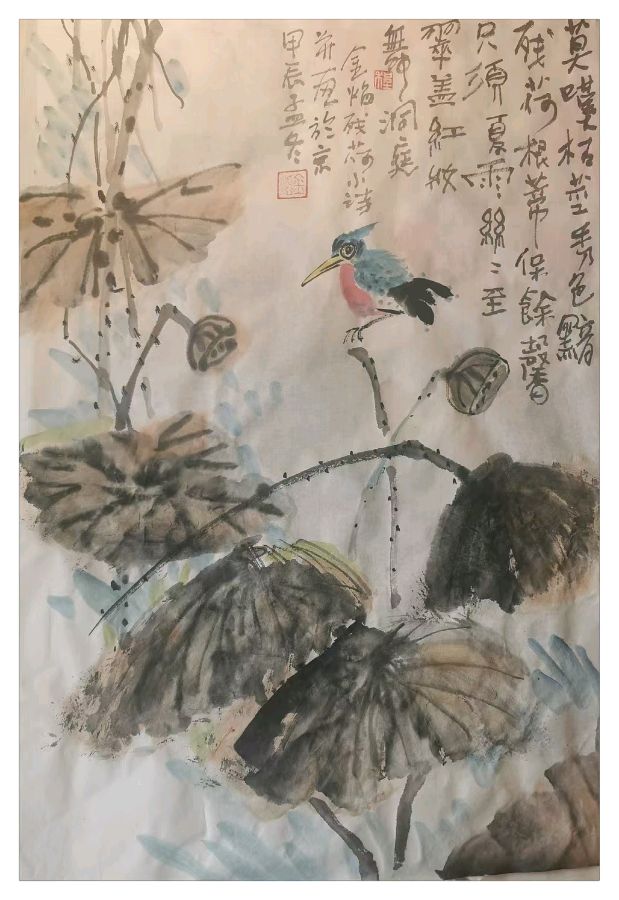 莫嘆枯莖秀色黯
殘荷根蒂保餘馨
只須夏雨絲絲至
翠蓋紅妝
舞洞庭
金焰殘荷小詩
並畫於京
甲辰孟冬